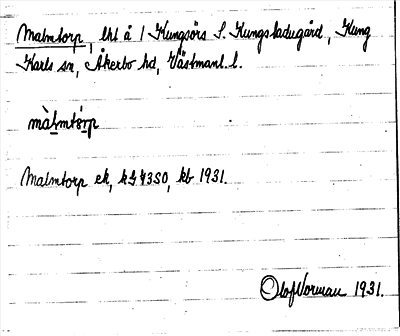 Malmtorp, lht å 1 Kungsörs S. Kungsladugård, Kung
Karls sn, Åkerbo hd, Västmanl. l.
màlmtórp
Malmtorp ek, kb 1931.
Olof Vorman 1931.